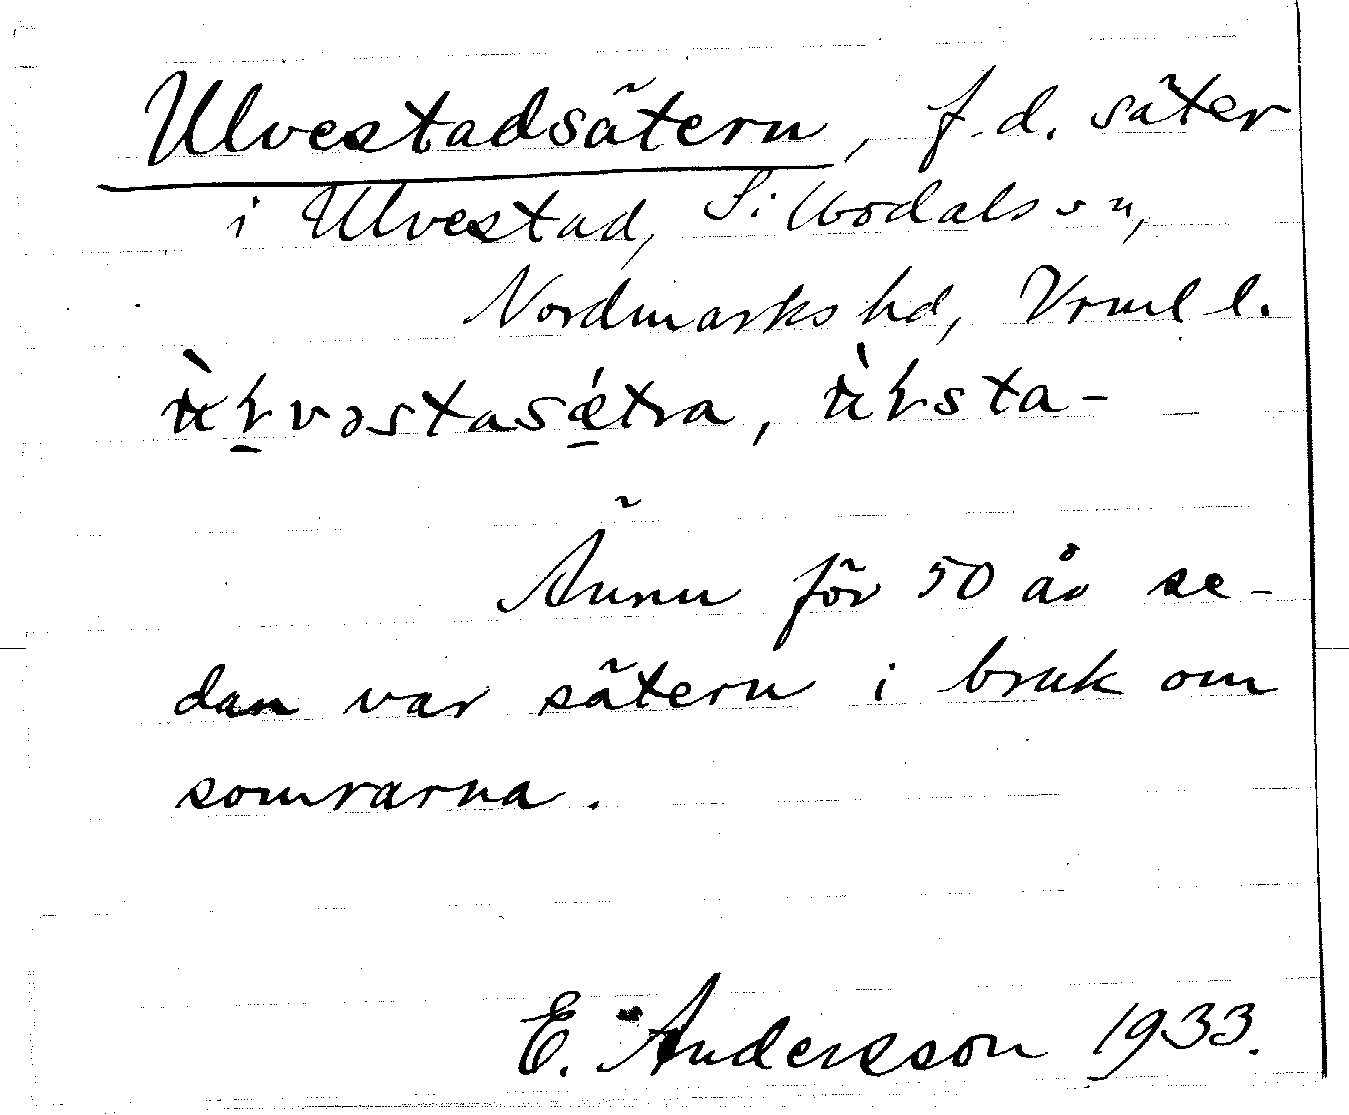 Ulvestadsätern, f.d. säter
i Ulvestad, Silbodals sn,
Nordmarks hd, Vrml l.
Ännu för 50 år se-
dan var sätern i bruk om
somrarna.
E. Andersson 1933.